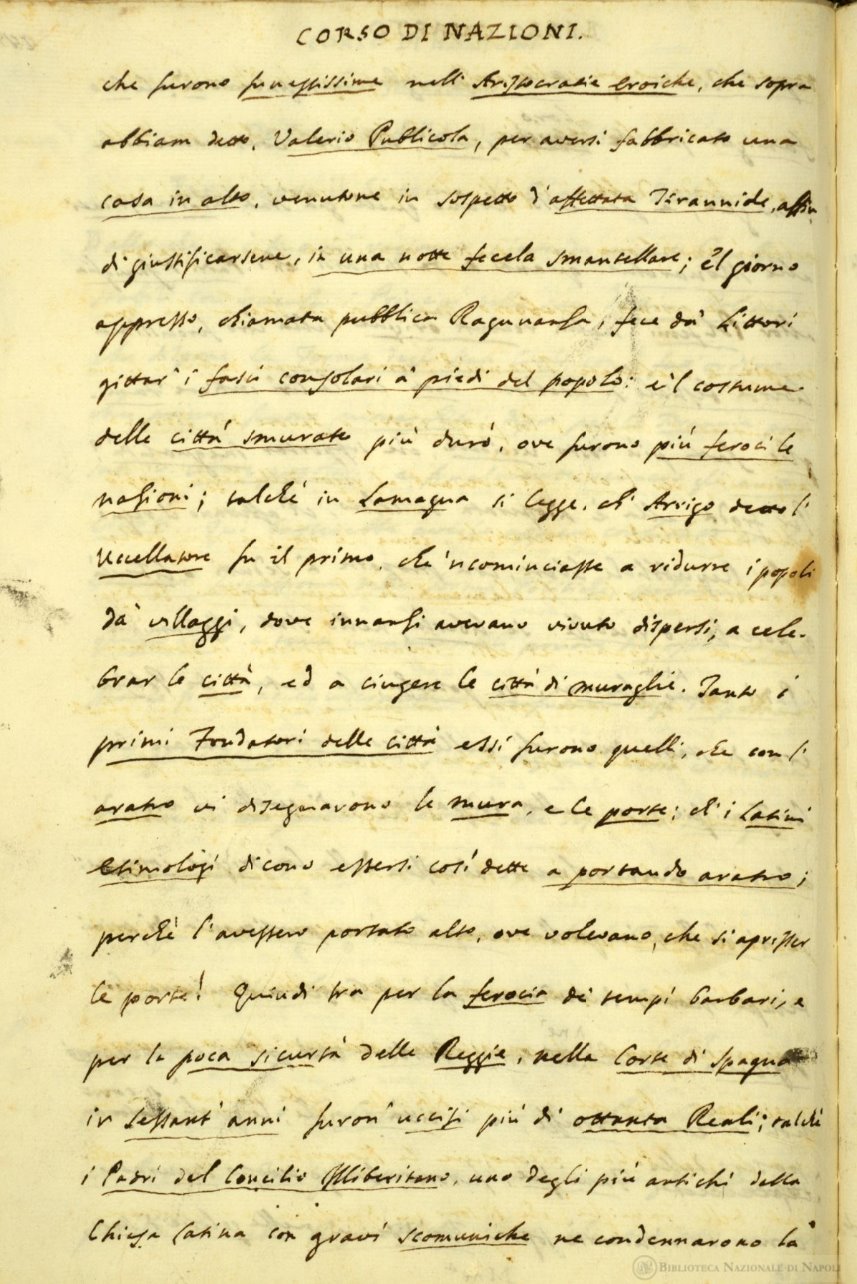 CORSO DI NAZIONI.
che furono funestissime nell' Aristocrazie eroiche, che sopra
abbiam detto. Valerio Publicola, per aversi fabbricato una
casa in alto, venutone in sospetto d'affettata Tirannide, affin
di giustificarsene, in una notte fecela smantellare; e 'l giorno
appresso, chiamata pubblica Ragunanza, fece da' Littori
gittar' i fasci consolari a' piedi del popolo: e 'l costume
delle città smurate più durò, ove furono più feroci le
nazioni; talchè in Lamagna si legge, ch' Arrigo detto l'
Uccellatore fu il primo, che 'ncominciasse a ridurre i popoli
da' villaggi, dove innanzi avevano vivuto dispersi, a cele-
brar le città, ed a cingere le città di muraglie. Tanto i
primi Fondatori delle città essi furono quelli, che con l'
aratro vi disegnarono le mura, e le porte; ch' i Latini
etimologi dicono essersi così dette a portando aratro;
perchè l'avessero portato alto, ove volevano, che si aprisser
le porte! Quindi tra per la ferocia de' tempi barbari, e
per la poca sicurtà delle Reggie, nella Corte di Spagna
in sessant' anni furon' uccisi più di ottanta Reali; talchè
i Padri del Concilio Illiberitano, uno degli più antichi della
Chiesa latina con gravi scomuniche ne condennarono la
BIBLIOTECA NAZIONALE DI NAPOLI